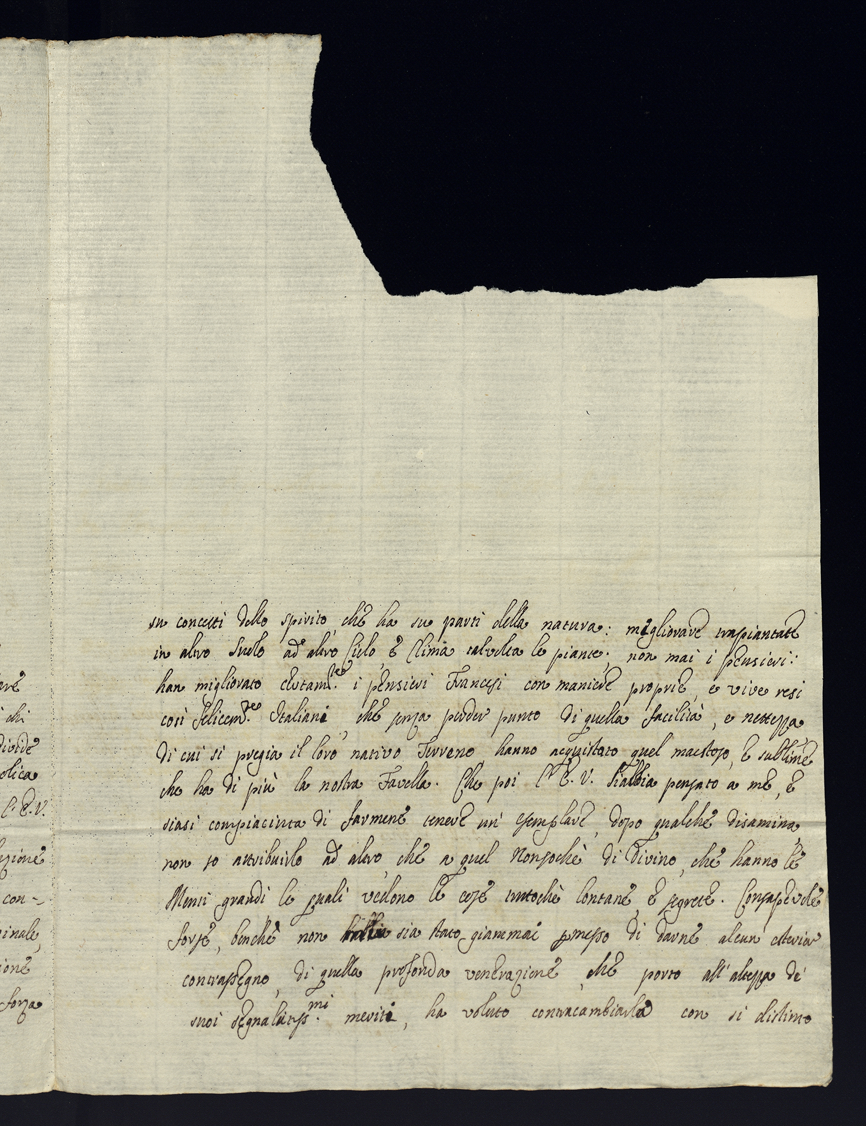 su concetti dello spirito che ha su parti della natura: migliorare traspiantate
in altro Suolo ad altro Cielo, e Clima talvolta le piante; non mai i pensieri:
han migliorato i pensieri Francesi con maniere proprie, e vive resi
così felicem.te Italiani, che senza perder punto di quella facilità, e nettezza
di cui si pregia il loro nativo Terreno hanno acquistato quel maestoso, e sublime
che ha di più la nostra Favella. Che poi l'E. V. pensato a me, e
siasi compiaciuta di farmene tenere un' esemplare, dopo qualche disamina,
non so attribuirlo ad altro, che a quel Nonsochè di Divino, che hanno le
Menti grandi le quali vedono le cose tuttochè lontane, e segrete. Consapevole
forse, benchè non sia stato giammai di darne alcun esterior
contrassegno, di quella profonda venerazione, che porto all'altezza de'
suoi segnalatiss.mi meriti, ha voluto contracambiarla con si distinto
are
i chi
olica
L'E.V.
zione
con-
ginale
ione
forza